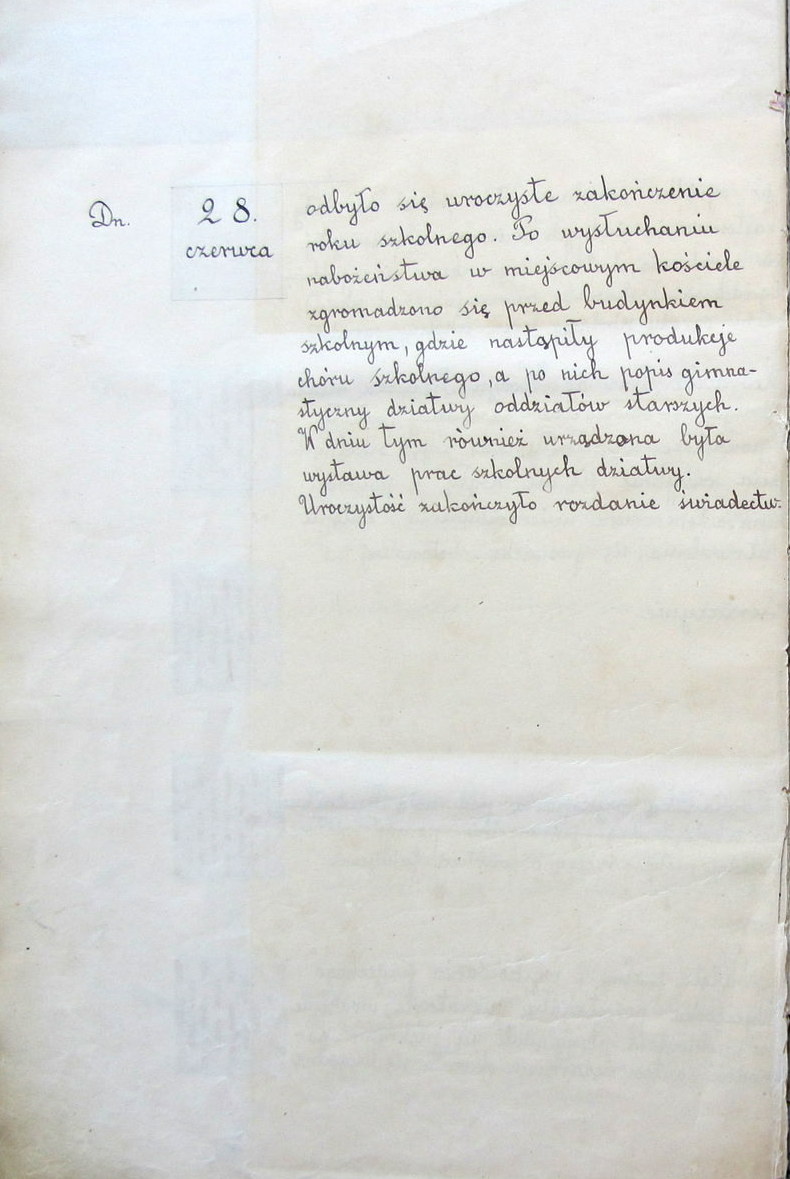 Dn. 28. czerwca
odbyło się uroczyste zakończenie
roku szkolnego. Po wysłuchaniu
nabożeństwa w miejscowym kościele
zgromadzono się przed budynkiem
szkolnym, gdzie nastąpiły produkcje
chóru szkolnego, a po nich popis gimna-
styczny dziatwy oddziałów starszych.
W dniu tym również urządzona była
wystawa prac szkolnych dziatwy.
Uroczystość zakończyło rozdanie świadectw.